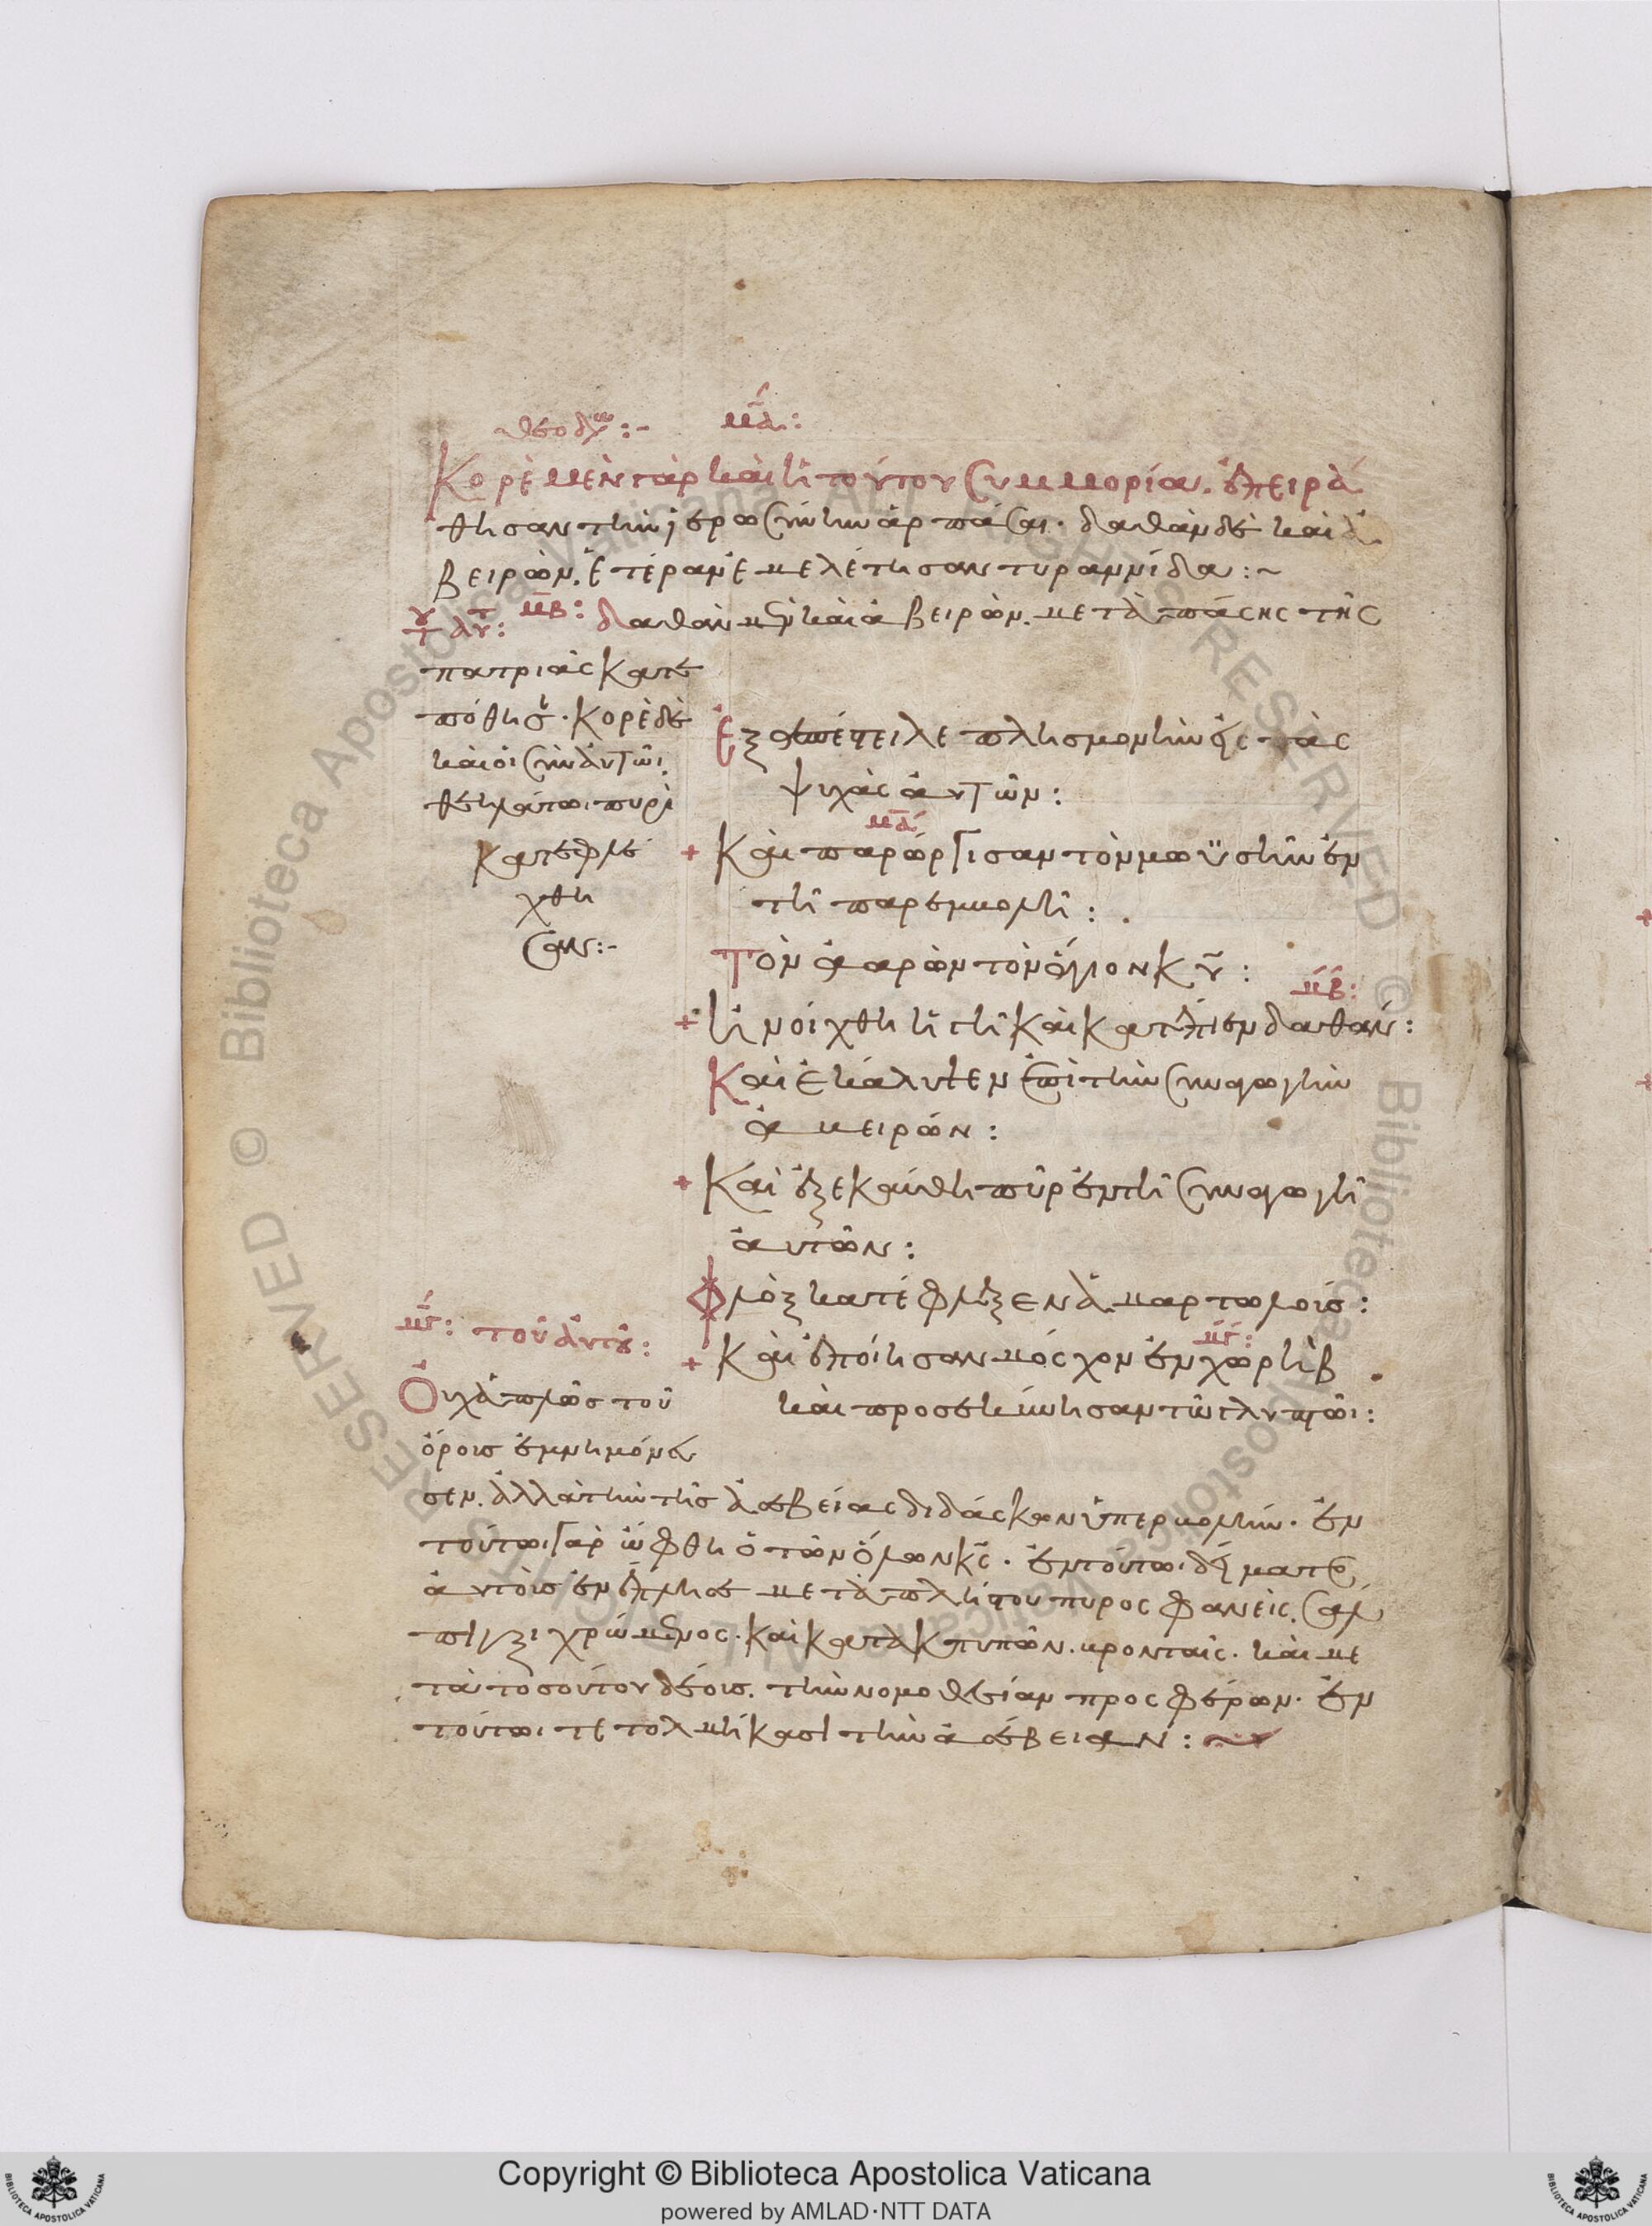 θεοδω :- μα :
Κορὲ μὲν γὰρ καὶ ἡ τούτου συμμορία. ἐπειρά
θησαν τὴν ἱερωσύνην ἁρπάσαι· δαθὰν δὲ καὶ ἀ
βειρών. ἑτέραν ἐμελέτησαν τυραννίδα :~
τοῦ αυτ μβ : δαθὰν μὲν καὶ ἀβειρὼν. μετὰ πάσης τῆς
πατριᾶς κατε
πόθησ· κορὲ δὲ
καὶ οἱ σὺν αὐτῶι.
θεηλάτωι πυρὶ
κατεφλέ
χθη
σαν :-
Ἐξαπέστειλε πλησμονὴν εἰς τὰς
ψυχὰς αὐτῶν :
μα
+ Καὶ παρώργισαν τὸν μωϋσῆν ἐν
τῆ παρεμβολῆ :
Τὸν ἀαρὼν τὸν ἅγιον κυ :
μβ :
+ Ἠνοίχθη ἡ γῆ καὶ κατέπιεν δαθάν :
Καὶ ἐκάλυψεν ἐπὶ τὴν συναγωγὴν
ἀβειρών :
+ Καὶ ἐξεκαύθη πῦρ ἐν τῆ συναγωγῆ
αὐτῶν :
Φλὸξ κατέφλεξεν ἁμαρτωλούς :
μγ : τοῦ αὐτοῦ : μγ :
+ Καὶ ἐποίησαν μόσχον ἐν χωρὴβ
καὶ προσεκύνησαν τῶ γλυπτῶι :
Οὐχ ἁπλῶς τοῦ
ὄρους ἐμνημόνευ
σεν. ἀλλὰ τὴν τῆς ἀσεβείας διδάσκων ὑπερβολήν. ἐν
τούτωι γὰρ ὤφθη ὁ τῶν ὅλων κς. ἐν τούτωι δείματος
αὐτοὺς ἐνέπλησε μετὰ πλείστου πυρος φανείς. σάλ
πιγξι χρώμενος. καὶ κατακτυπῶν. βρονταῖς. καὶ με
τὰ τοσούτου δέους. τὴν νομοθεσίαν προσφέρων. ἐν
τούτωι τετολμήκασι τὴν ἀσέβειαν : ~
Copyright © Biblioteca Apostolica Vaticana
powered by AMLAD·NTT DATA